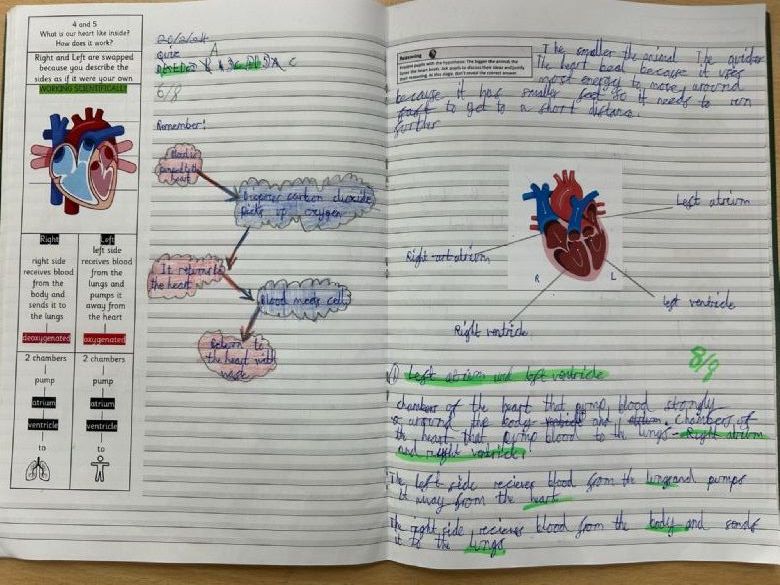 4 and 5
What is our heart like inside?
How does it work?
Right and Left are swapped
because you describe the
sides as if it were your own
WORKING SCIENTIFICALLY
Right
right side
receives blood
from the
body and
sends it to
the lungs
deoxygenated
2 chambers
pump
atrium
ventricle
to
Left
left side
receives blood
from the
lungs and
pumps it
away from
the heart
oxygenated
2 chambers
pump
atrium
ventricle
to
Quiz
A
C
6/8
Remember!
Blood is
pumped by the
heart
carbon dioxide
Picks up oxygen
It returns to
the heart
Blood meets cells
Return to
the heart with
Reasoning
The smaller the animal The quicker
The heart beat because it uses
most energy to move around
because it has smaller feet so it needs to run
fast to get to a short distance.
further
Left atrium
Right atrium
R
L
left ventricle
Right ventricle
8/9
1 Left atrium and left ventricle
chambers of the heart that pump blood strongly
around the body and atrium. Chambers of
the heart that pump blood to the lungs - Right atrium
and right ventricle.
The left side reciever blood from the lungs and pumps
it away from the heart
The right side reciever blood from the body and sends
it to the lungs